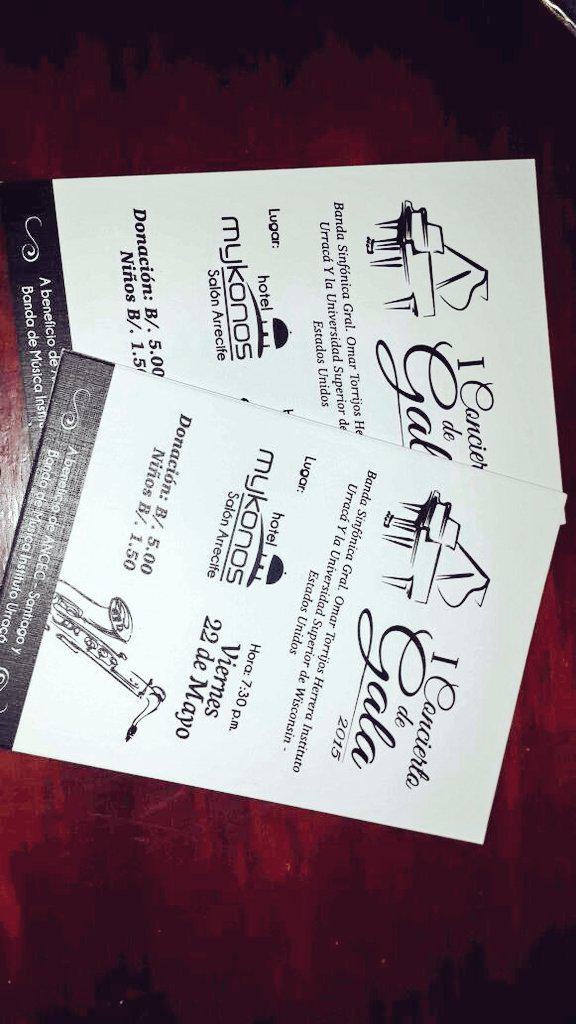 I Concier
de
Gal
Banda Sinfónica Gral. Omar Torrijos He
Urracá Y la Universidad Superior de
Estados Unidos
Lugar:
hotel
mykonos
Salón Arrecife
Donación: B/. 5.00
Niños B/. 1.5
A beneficio de
Banda de Música Insti
I Concierto
de
Gala
2015
Banda Sinfónica Gral. Omar Torrijos Herrera Instituto
Urracá Y la Universidad Superior de Wisconsin -
Estados Unidos
Lugar:
hotel
mykonos
Salón Arrecife
Hora: 7:30 p.m.
Viernes
22 de Mayo
Donación: B/. 5.00
Niños B/. 1.50
A beneficio de ANCEC - Santiago y
Banda de Música Instituto Urracá